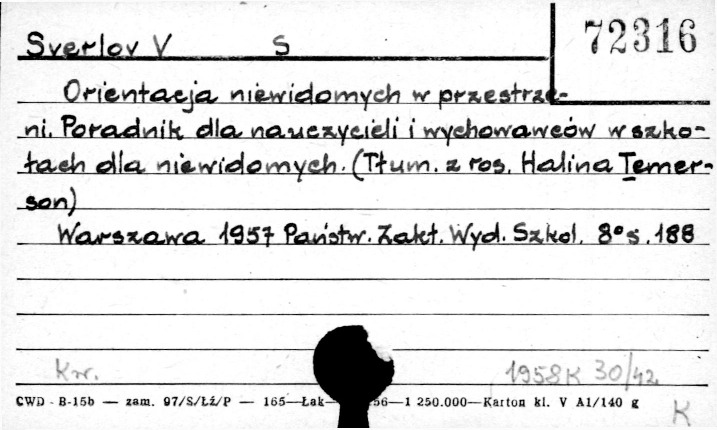 Sverlov V S
72316
Orientacja niewidomych w przestrze-
ni. Poradnik dla nauczycieli i wychowawców w szko-
łach dla niewidomych. (Tłum. z ros. Halina Temer-
son)
Warszawa 1957 Państw. Zakł. Wyd. Szkol. 8° s. 188
Kw.
1958 K 30/42
CWD - B-15b — zam. 97/S/Łź/P — 165—Łak- 56—1 250.000—Karton kl. V A1/140 g
K